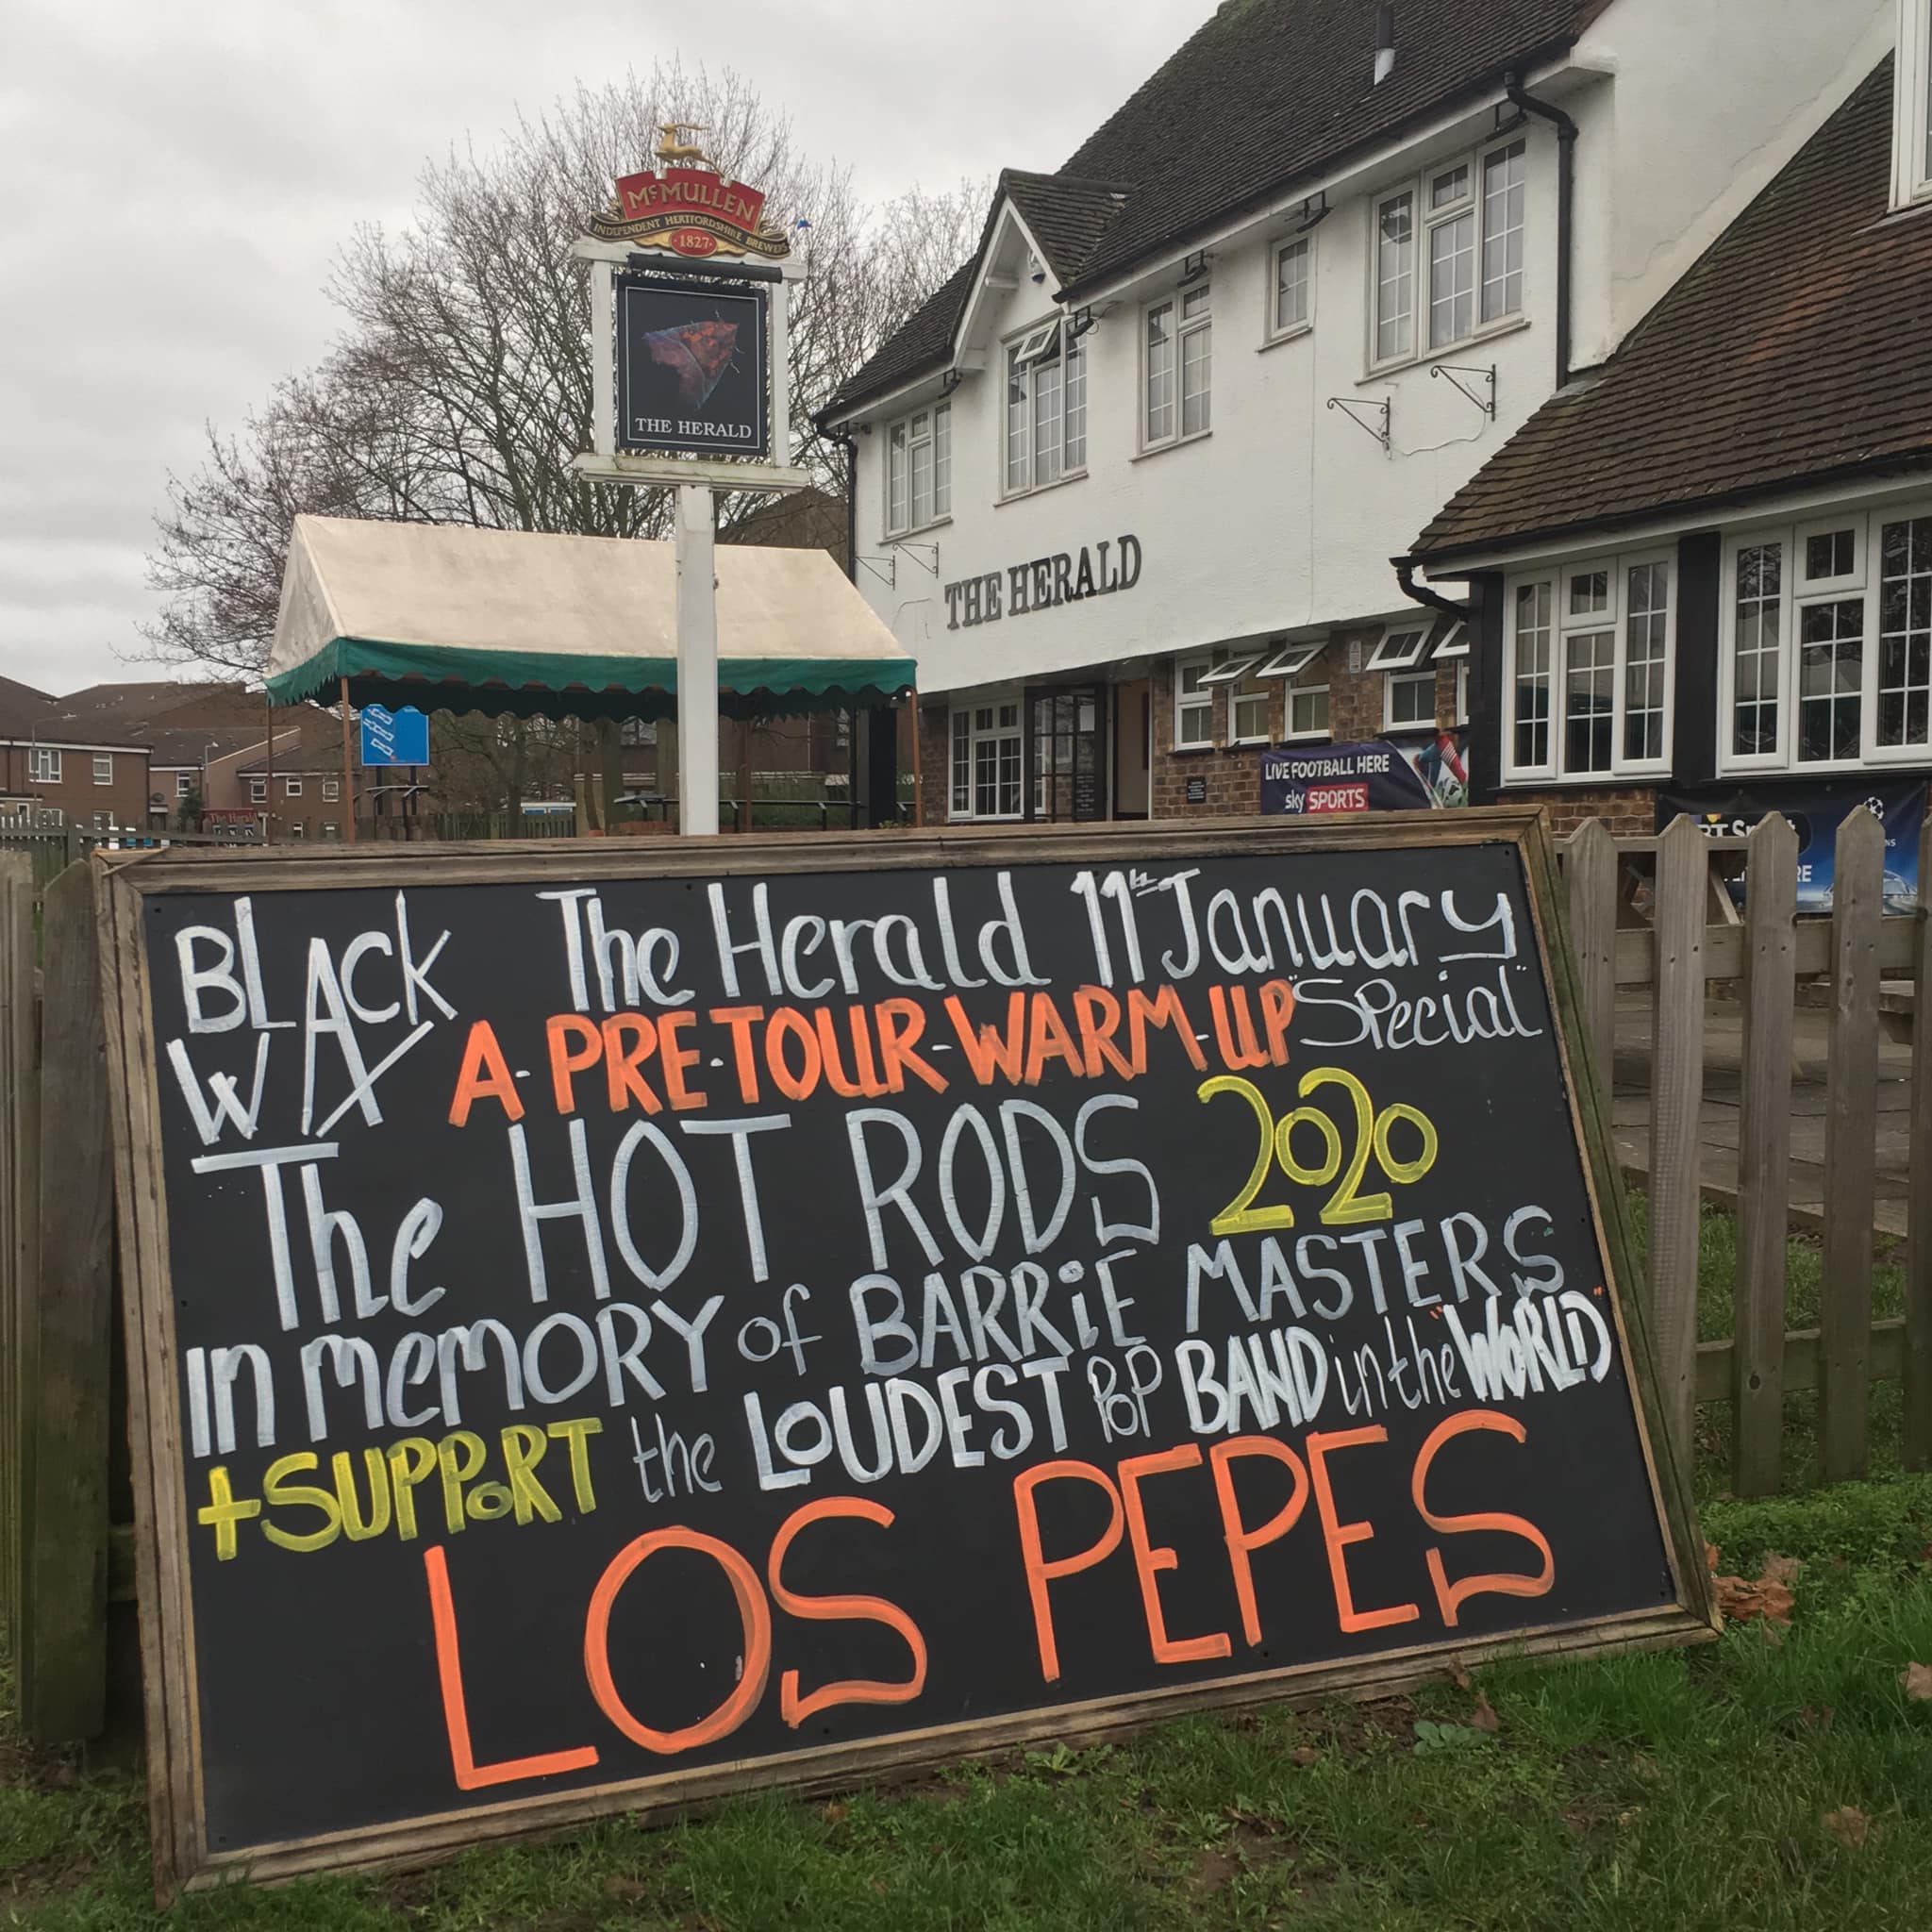 McMULLEN
INDEPENDENT HERTFORDSHIRE BREWERS
·1827·
THE HERALD
THE HERALD
LIVE FOOTBALL HERE
sky SPORTS
The Herald
BLACK WAX
The Herald 11th January
A-PRE-TOUR-WARM-UP "Special"
The HOT RODS 2020
IN memORY of BARRiE MASTERS
+SUPPORT the LOUDEST POP BAND in the "WORLD"
LOS PEPES